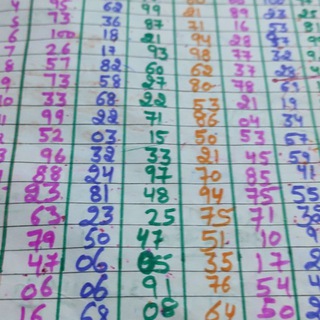 4 95 62 99 80 21 89 23
5 73 36 87 71 16 63
6 100 18 21 94 28
7 26 17 93 98 77 32
8 57 82 60 62 37
9 73 58 27 80 78 63
10 33 68 22 53 21 19
11 99 22 71 86 04 34
52 03 15 50 53 67
96 32 33 21 45 59
88 24 97 70 85 41
23 81 48 94 75 55
63 23 25 75 71
79 50 47 51 10
47 06 05 35 17
06 06 91 76 54
16 68 08 64 50